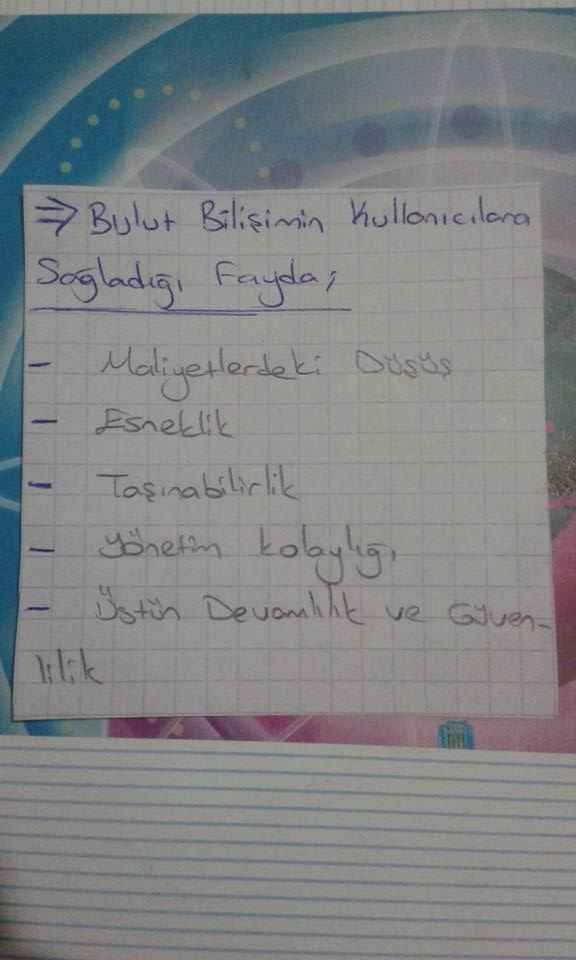 ⇒ Bulut Bilişimin Kullanıcılara
Sağladığı Fayda;
- Maliyetlerdeki Düşüş
- Esneklik
- Taşınabilirlik
- Yönetim kolaylığı
- Üstün Devamlılık ve Güven-
lilik